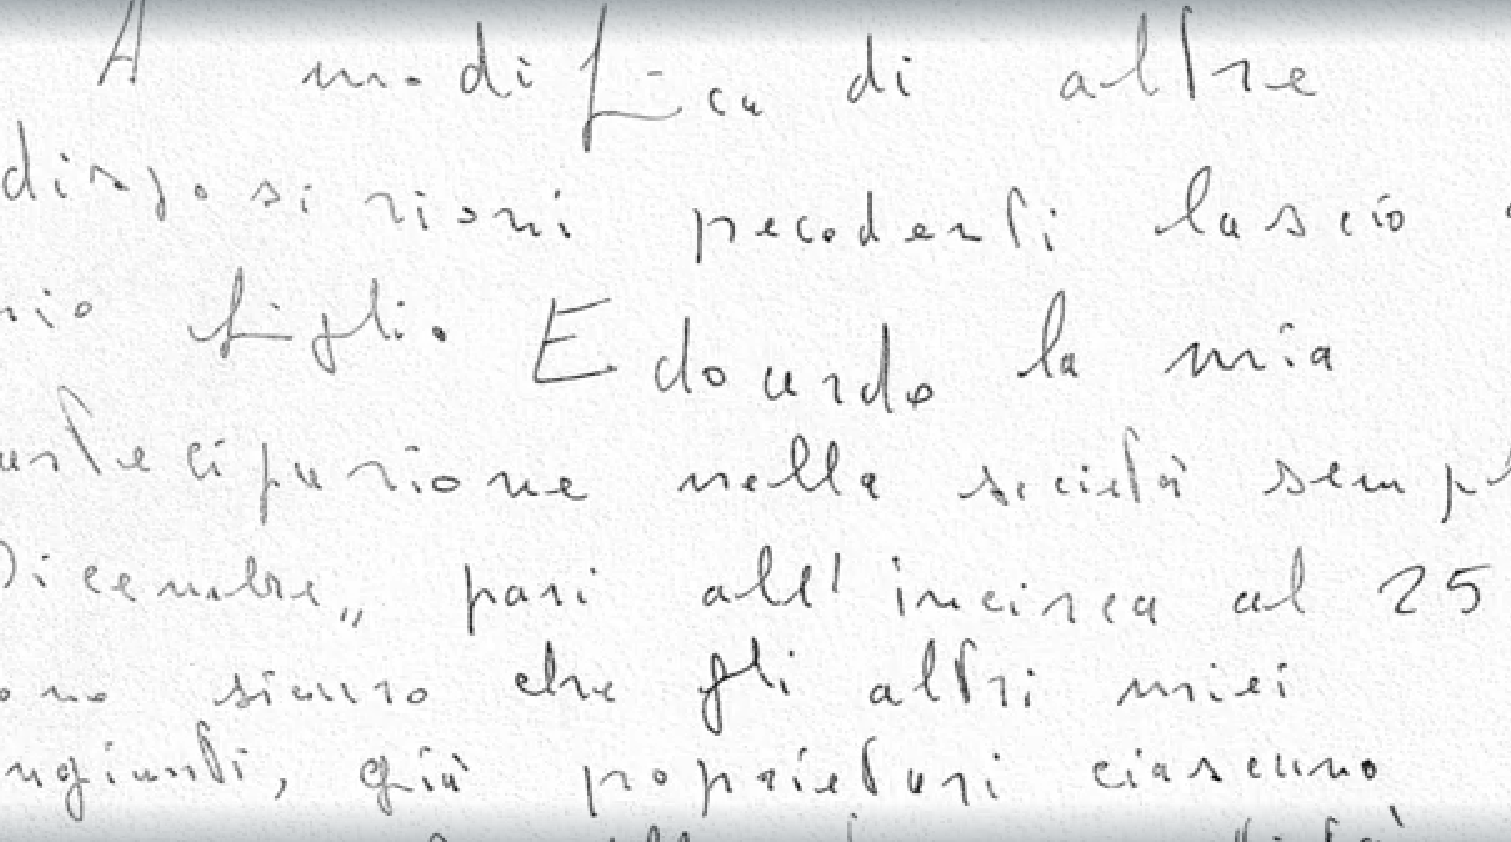 A modifica di altre
disposizioni precedenti lascio
mio figlio Edoardo la mia
partecipazione nella società sempl
Dicembre„ pari all'incirca al 25
sono sicuro che gli altri miei
ngiunti, già proprietari ciascuno